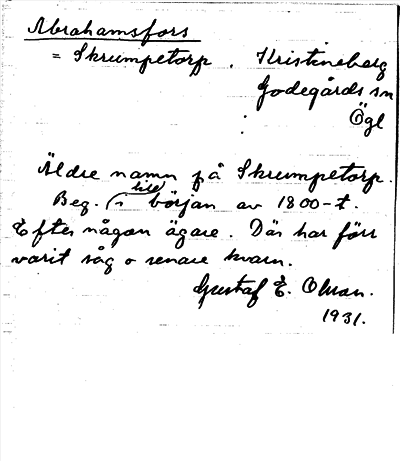 Abrahamsfors
= Skrumpetorp. Kristineberg
Godegårds sn
Ögl
Äldre namn på Skrumpetorp.
Beg. (i till början av 1800-t.
Efter någon ägare. Där har förr
varit såg o senare kvarn.
Gustaf E. Olman.
1931.